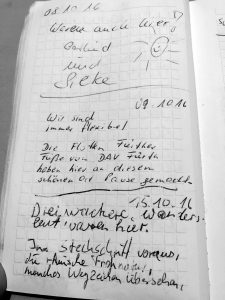 03.10.16
Waren auch hier!
und
Silke
09.10.16
Wir sind
immer flexibel
Die Flotten Fürther
Füße vom DAV Fürth
haben hier an diesem
schönen Ort Pause gemacht
15.10.16
Drei wackere Wanders-
leut' waren hier.
Im Stechschritt voraus,
die
manches Wegzeichen übersehen,